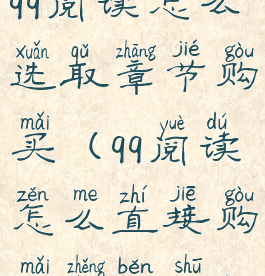 99阅读怎么
xuǎn qǔ zhāng jié gòu
选取章节购
mǎi yuè dú
买（99阅读
zěn me zhí jiē gòu
怎么直接购
mǎi zhěng běn shū